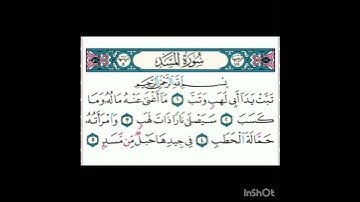 سُورَةُ المَسَدِ
بِسْمِ اللَّهِ الرَّحْمَٰنِ الرَّحِيمِ
تَبَّتْ يَدَا أَبِي لَهَبٍ وَتَبَّ ١ مَا أَغْنَىٰ عَنْهُ مَالُهُ وَمَا
كَسَبَ ٢ سَيَصْلَىٰ نَارًا ذَاتَ لَهَبٍ ٣ وَامْرَأَتُهُ
حَمَّالَةَ الْحَطَبِ ٤ فِي جِيدِهَا حَبْلٌ مِّن مَّسَدٍ ٥
InShOt